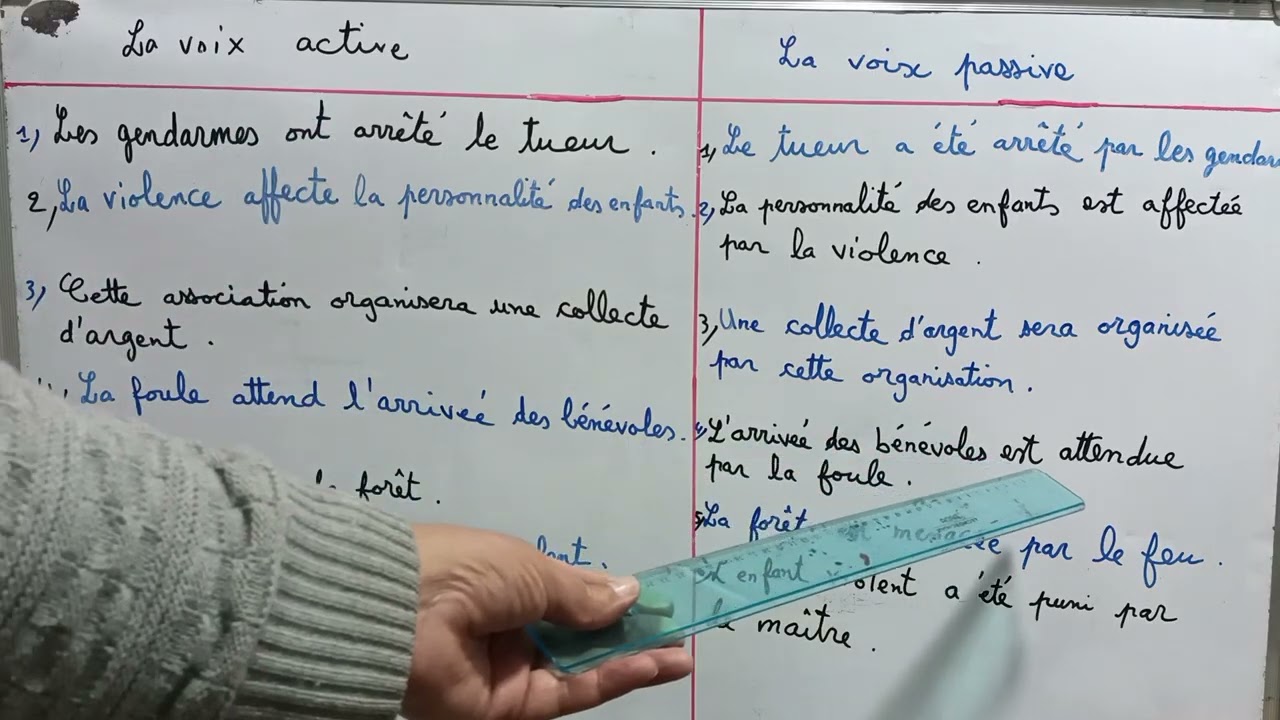 La voix active
1) Les gendarmes ont arrêté le tueur.
2, La violence affecte la personnalité des enfants.
3) Cette association organisera une collecte
d'argent.
La foule attend l'arriveé des bénévoles.
forêt.
La voix passive
1) Le tueur a été arrêté par les gendar
2, La personnalité des enfants est affecteé
par la violence.
3, Une collecte d'argent sera organiseé
par cette organisation.
4) L'arriveé des bénévoles est attendue
par la foule.
5, La forêt est par le feu.
enfant violent a été puni par
maître.